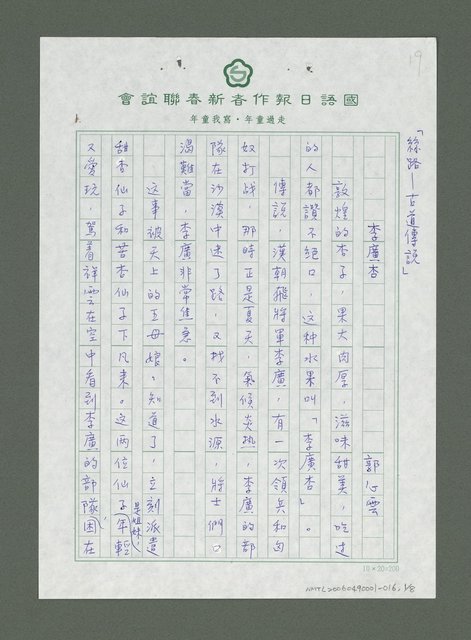 19
國語日報作者新春聯誼會
走過童年·寫我童年
「絲路—古道傳說」
李廣杏
郭心雲
敦煌的杏子，果大肉厚，滋味甜美，吃过
的人都讚不絕口，这种水果叫「李廣杏」。
傳說，漢朝飛將軍李廣，有一次領兵和匈
奴打战，那時正是夏天，氣候炎熱，李廣的部
隊在沙漠中迷了路，又找不到水源，將士們口
渴難當，李廣非常焦急。
这事被天上的王母娘々知道了，立刻派遣
甜杏仙子和苦杏仙子下凡來。这两位仙子是姐妹，年輕
又愛玩，駕着祥雲在空中看到李廣的部隊困在
10×20=200
NMTL20060490001-016, 1/8